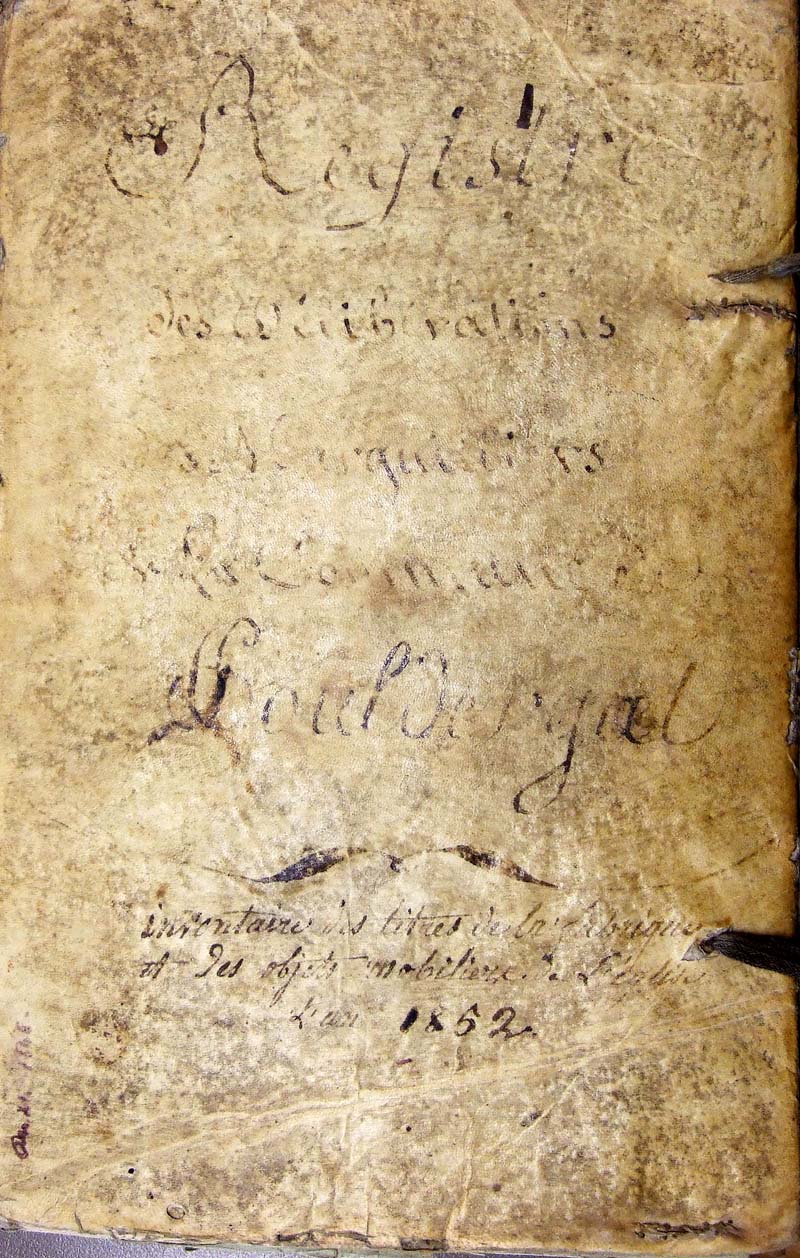 Registre
des Délibérations
de Marguilliers
de la Commune de
Pouldergat
inventaire des titres de la fabrique
et des objets mobiliers de l'église
L'an 1852.